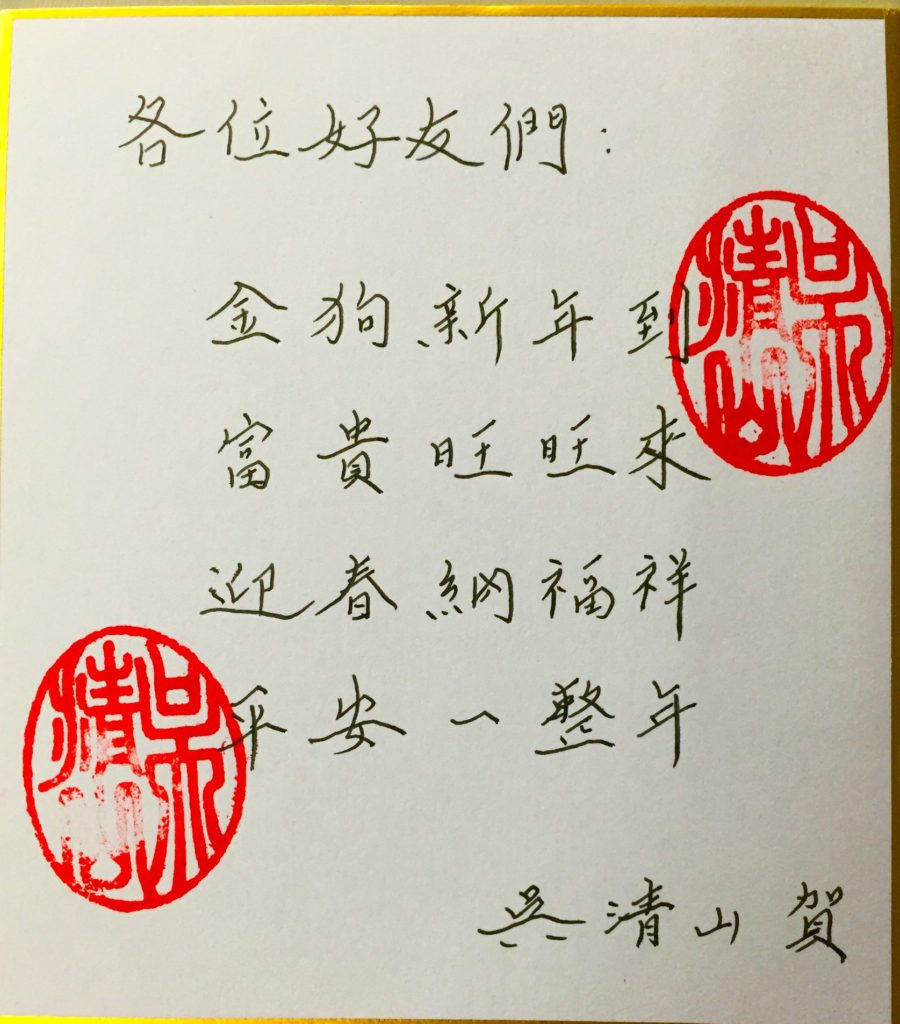 各位好友們：
金狗新年到
富貴旺旺來
迎春納福祥
平安一整年
吳清山賀
吳清山
吳清山